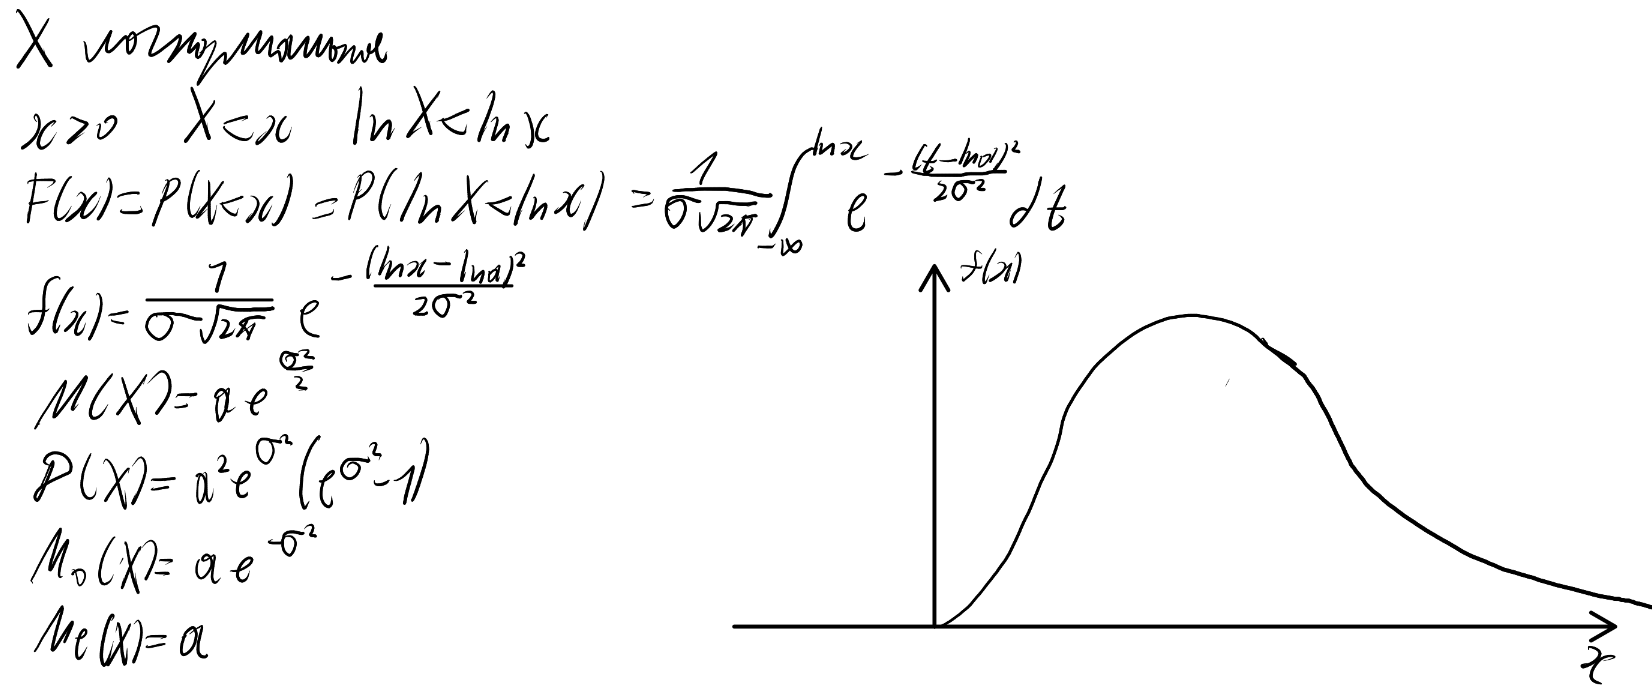 X логнормальное
x>0 X<x lnX<lnx
F(x)=P(X<x)=P(lnX<lnx)=\frac{1}{σ\sqrt{2π}}\int_{-∞}^{lnx} e^{-\frac{(t-lna)^2}{2σ^2}}dt
f(x)=\frac{1}{σ\sqrt{2π}} e^{-\frac{(lnx-lna)^2}{2σ^2}}
M(X)=ae^{\frac{σ^2}{2}}
D(X)=a^2e^{σ^2}(e^{σ^2}-1)
M_0(X)=ae^{-σ^2}
Me(X)=a
f(x)
x